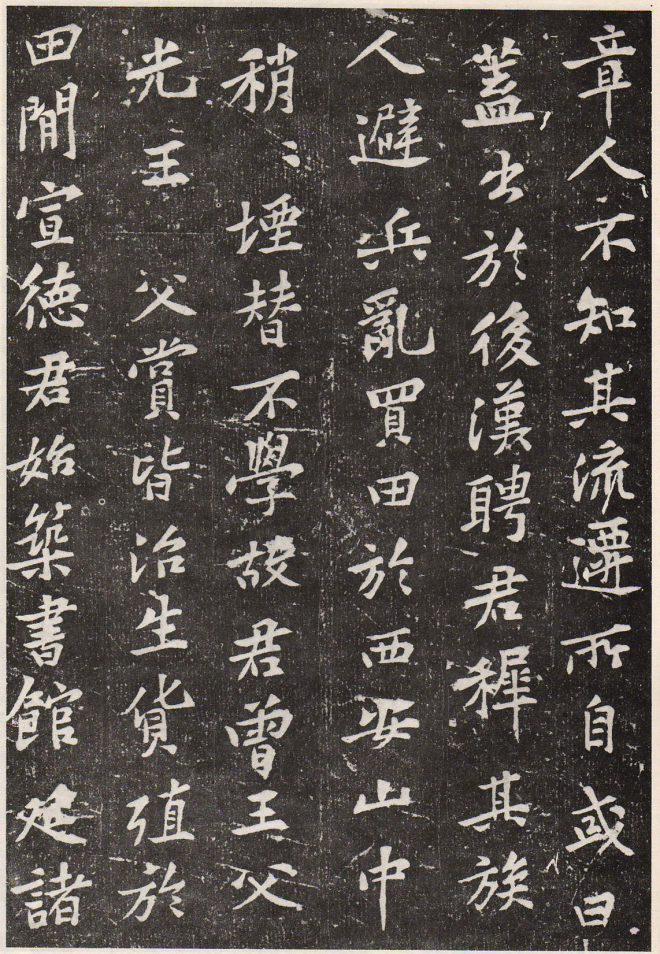 章人不知其流遷所自或曰
蓋出於後漢聘君穉其族
人避兵亂買田於西安山中
稍〻堙替不學故君曾王父
光王父賞皆治生貨殖於
田間宣德君始築書館延諸